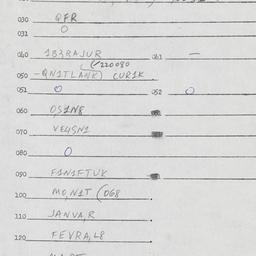 030 QFR
031 O
040 1B3RAJUR 041 —
(220080
050 -QN1TLANK) CUR1K
051 O 052 O
060 O,S1N8
070 VE4SN1
080 O
090 F1N1FTUK
100 MO,N1T (068
110 JANVA,R
120 FEVRA,L8